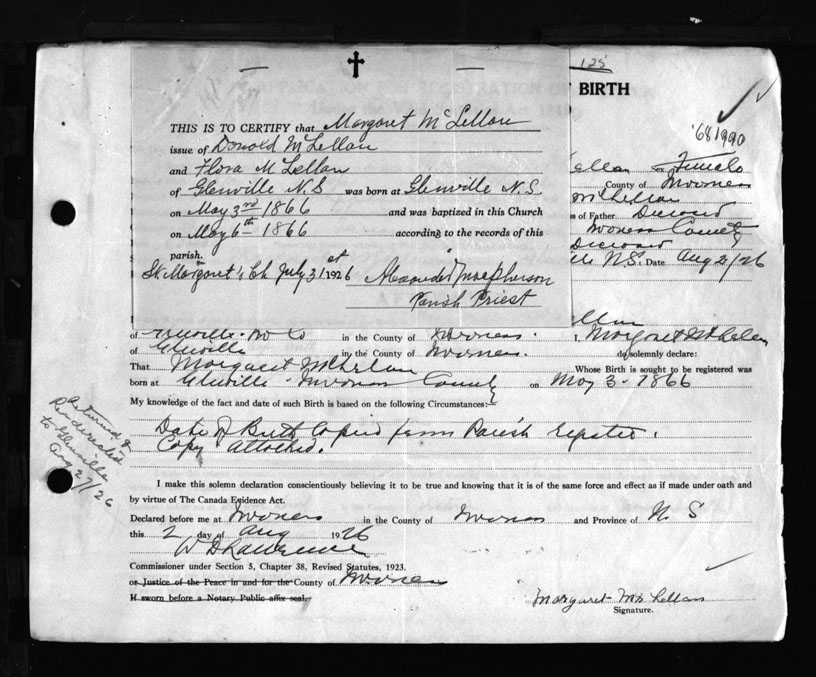 125
BIRTH
681990
THIS IS TO CERTIFY that Margaret McLellan
issue of Donald McLellan
and Flora McLellan
of Glenville N.S was born at Glenville N.S.
on May 3rd 1866 and was baptized in this Church
on May 6th 1866 according to the records of this
parish.
St. Margaret's Ch July 31st 1926 Alexander Macpherson
Parish Priest
Female
County of Inverness
McLellan
s of Father Deceased
Inverness County
Deceased
N.S. Date Aug 2/26
of Glenville in the County of Inverness. I, Margaret McLellan
of Glenville in the County of Inverness. do solemnly declare:
That Margaret McLellan Whose Birth is sought to be registered was
born at Glenville Inverness County on May 3 - 1866
My knowledge of the fact and date of such Birth is based on the following Circumstances:—
Date of Birth Copied from Parish register.
Copy attached.
Returned &
Redirected
to Glenville
Aug 27/26
I make this solemn declaration conscientiously believing it to be true and knowing that it is of the same force and effect as if made under oath and
by virtue of The Canada Evidence Act.
Declared before me at Inverness in the County of Inverness and Province of N. S
this 2 day of Aug 1926
W D Lawrence
Commissioner under Section 5, Chapter 38, Revised Statutes, 1923.
or Justice of the Peace in and for the County of Inverness
If sworn before a Notary Public affix seal.
Margaret McLellan
Signature.